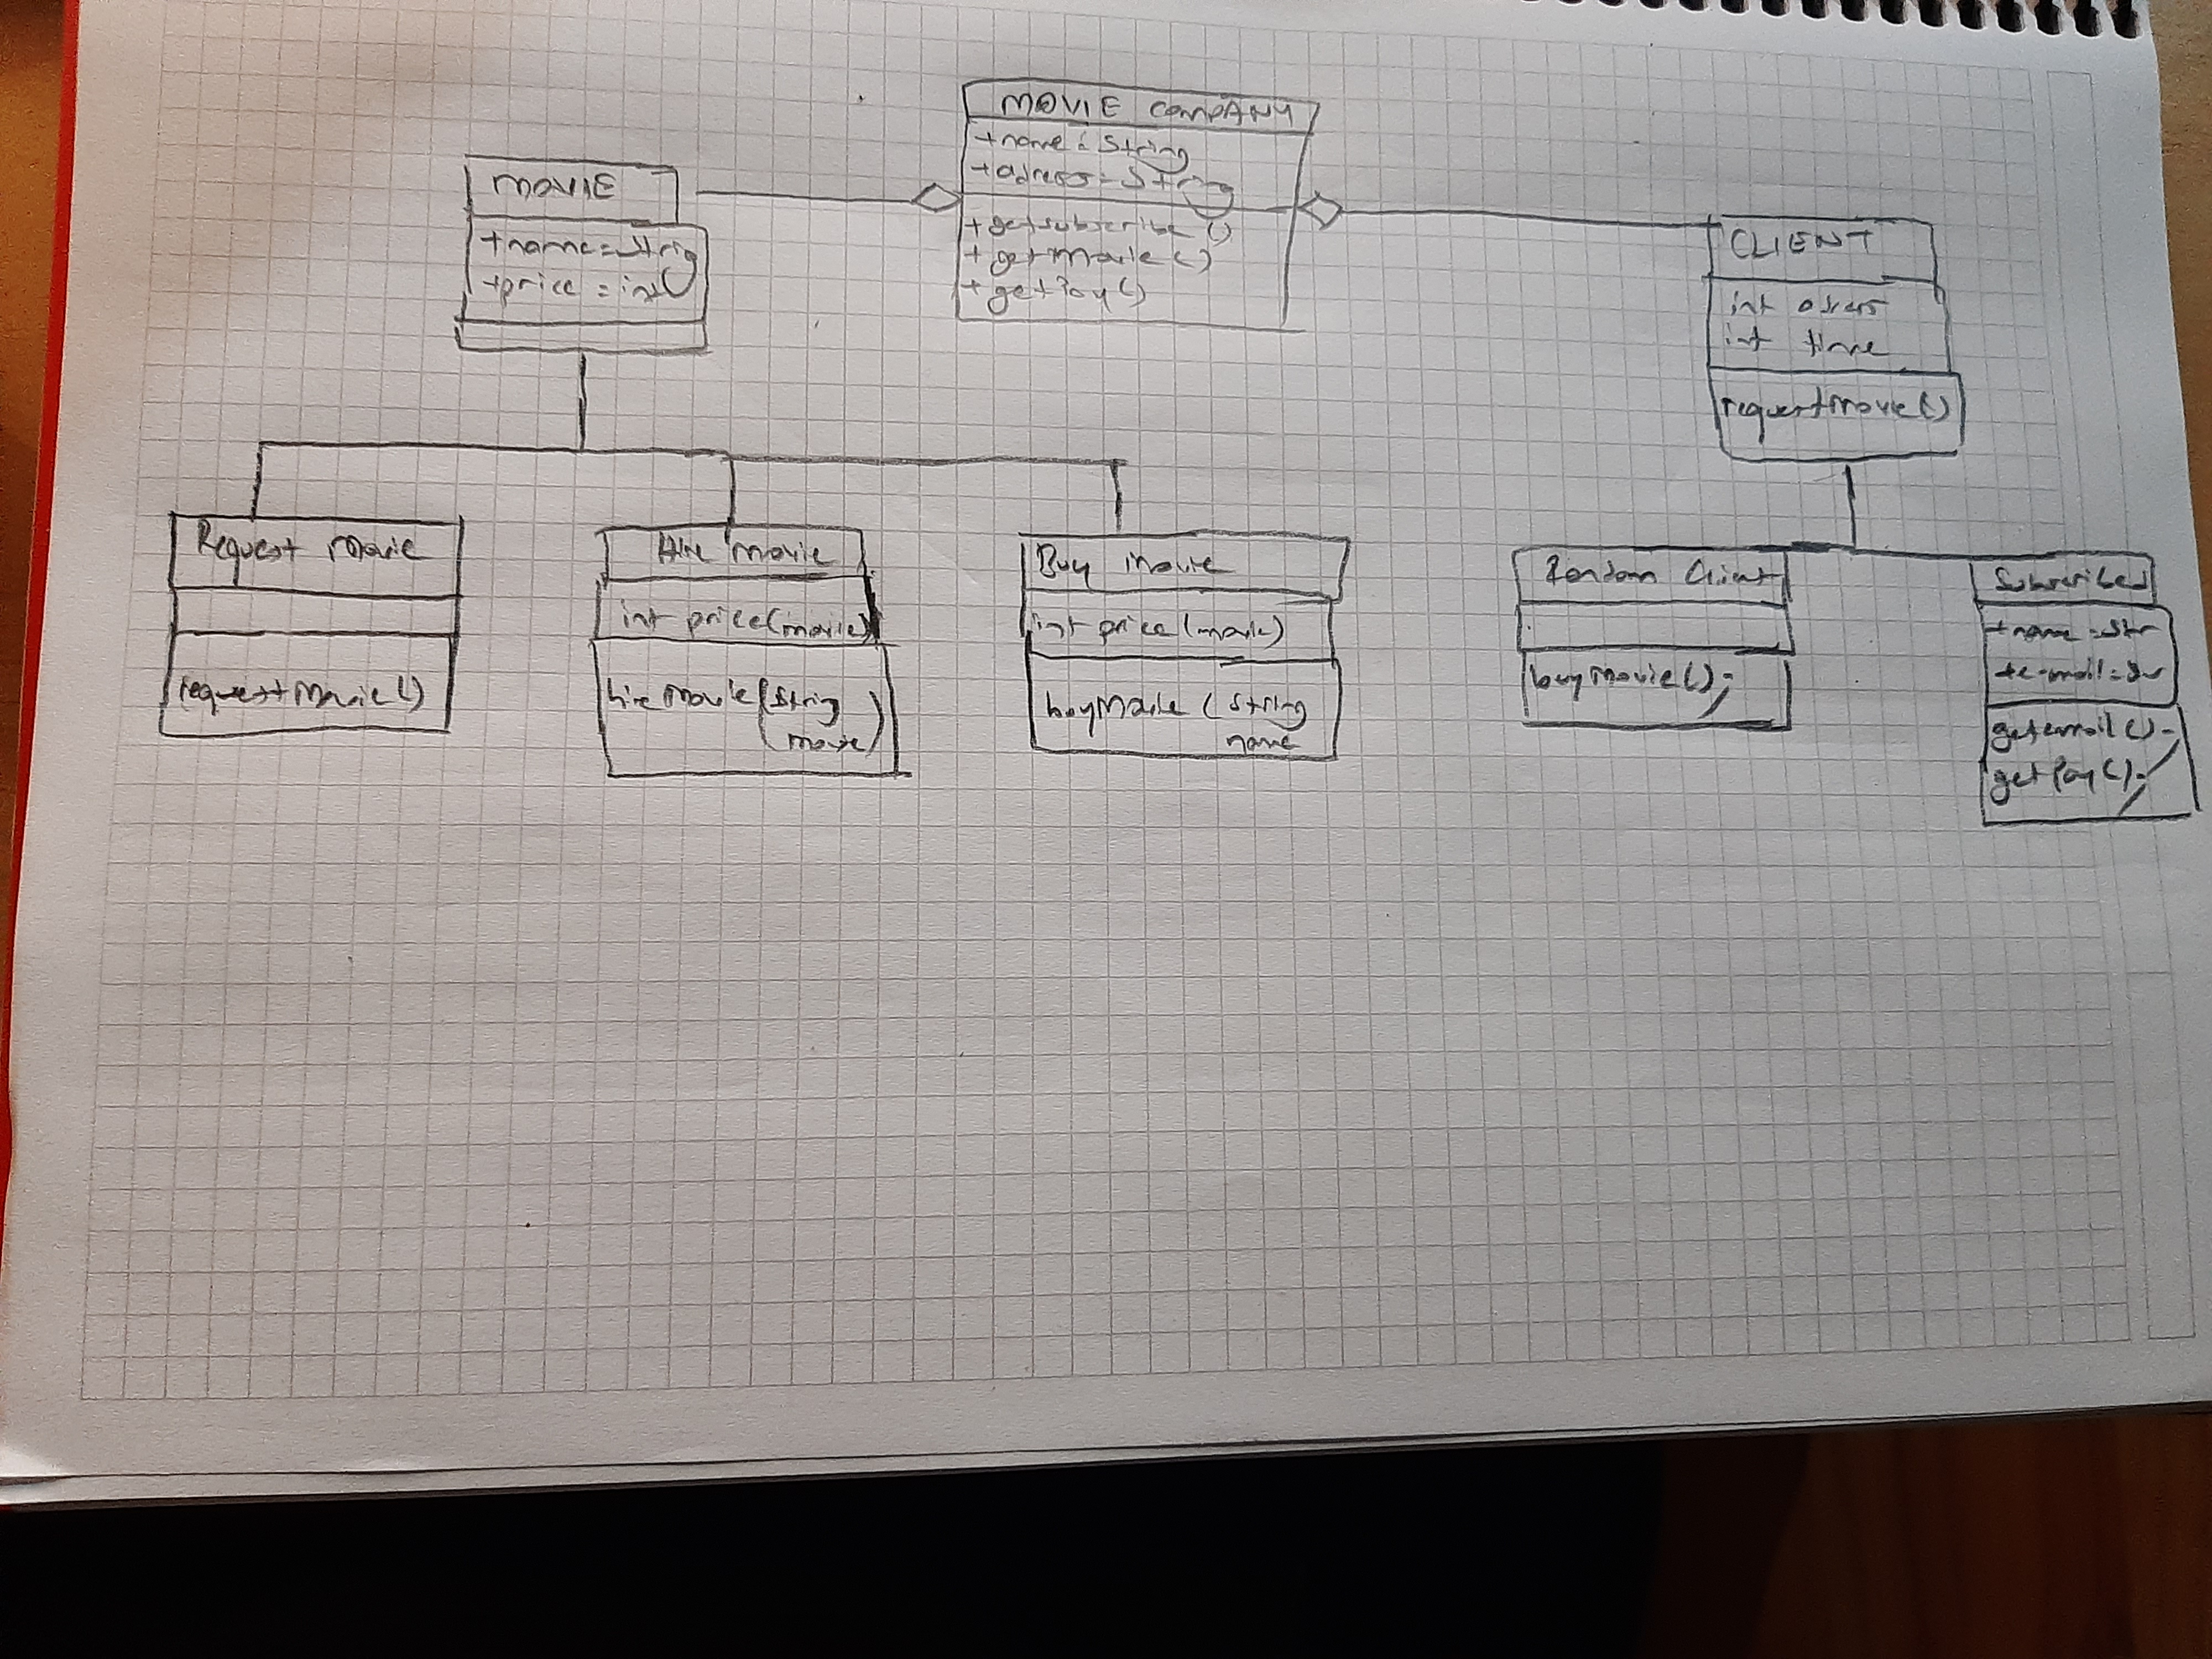 MOVIE COMPANY
+name : String
+adress = String
+getsubscribe ()
+ getMovie ()
+ getPay ()
MOVIE
+name = String
+price = int
CLIENT
int
int time
requestmovie ()
Request Movie
requestMovie ()
Hire Movie
int price (movie)
hireMovie (String
movie)
Buy Movie
int price (movie)
buyMovie ( String
name
Random Client
buyMovie () ;
Subscribed
+name = Str
+e-mail = Str
getemail () ;
getPay () ;